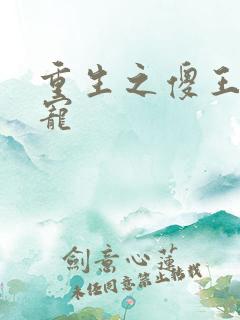 重生之傻王
寵
劍意心蓮
未經同意禁止轉載